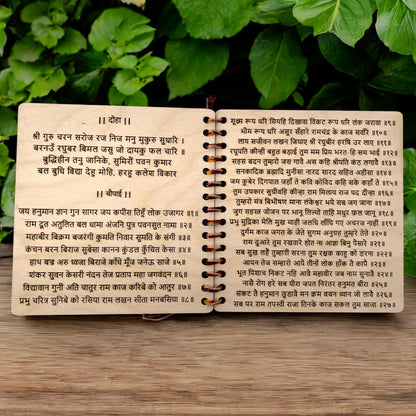 ।। दोहा ।।
श्री गुरु चरन सरोज रज निज मनु मुकुरु सुधारि ।
बरनउँ रघुबर बिमल जसु जो दायकु फल चारि ।
बुद्धिहीन तनु जानिके, सुमिरों पवन कुमार
बल बुधि विद्या देहु मोहि, हरहु कलेश बिकार
।। चौपाई ।।
जय हनुमान ज्ञान गुन सागर जय कपीस तिहुँ लोक उजागर ॥१॥
राम दूत अतुलित बल धामा अंजनि पुत्र पवनसुत नामा ॥२॥
महाबीर बिक्रम बजरंगी कुमति निवार सुमति के संगी ॥३॥
कंचन बरन बिराज सुबेसा कानन कुंडल कुँचित केसा ॥४॥
हाथ बज्र अरु ध्वजा बिराजे काँधे मूँज जनेऊ साजे ॥५॥
शंकर सुवन केसरी नंदन तेज प्रताप महा जगवंदन ॥६॥
विद्यावान गुनी अति चातुर राम काज करिबे को आतुर ॥७॥
प्रभु चरित्र सुनिबे को रसिया राम लखन सीता मनबसिया ॥८॥
सूक्ष्म रूप धरि सियहि दिखावा विकट रूप धरि लंक जरावा ॥९॥
भीम रूप धरि असुर सँहारे रामचंद्र के काज सवाँरे ॥१०॥
लाय सजीवन लखन जियाए श्री रघुबीर हरषि उर लाए ॥११॥
रघुपति कीन्ही बहुत बड़ाई तुम मम प्रिय भरत हि सम भाई ॥१२॥
सहस बदन तुम्हरो जस गावै अस कहि श्रीपति कंठ लगावै ॥१३॥
सनकादिक ब्रह्मादि मुनीसा नारद सारद सहित अहीसा ॥१४॥
जम कुबेर दिगपाल जहाँ ते कवि कोविद कहि सके कहाँ ते ॥१५॥
तुम उपकार सुग्रीवहि कीन्हा राम मिलाय राज पद दीन्हा ॥१६॥
तुम्हरो मंत्र बिभीषण माना लंकेश्वर भये सब जग जाना ॥१७॥
जुग सहस्र जोजन पर भानू लिल्यो ताहि मधुर फल जानू ॥१८॥
प्रभु मुद्रिका मेलि मुख माही जलधि लाँघि गए अचरज नाही ॥१९॥
दुर्गम काज जगत के जेते सुगम अनुग्रह तुम्हरे तेते ॥२०॥
राम दुआरे तुम रखवारे होत ना आज्ञा बिनु पैसारे ॥२१॥
सब सुख लहैं तुम्हारी सरना तुम रक्षक काहु को डरना ॥२२॥
आपन तेज सम्हारो आपै तीनों लोक हाँक ते कापै ॥२३॥
भूत पिशाच निकट नहि आवे महावीर जब नाम सुनावै ॥२४॥
नासै रोग हरे सब पीरा जपत निरंतर हनुमत बीरा ॥२५॥
संकट तै हनुमान छुडावै मन क्रम वचन ध्यान जो लावै ॥२६॥
सब पर राम तपस्वी राजा तिनके काज सकल तुम साजा ॥२७॥